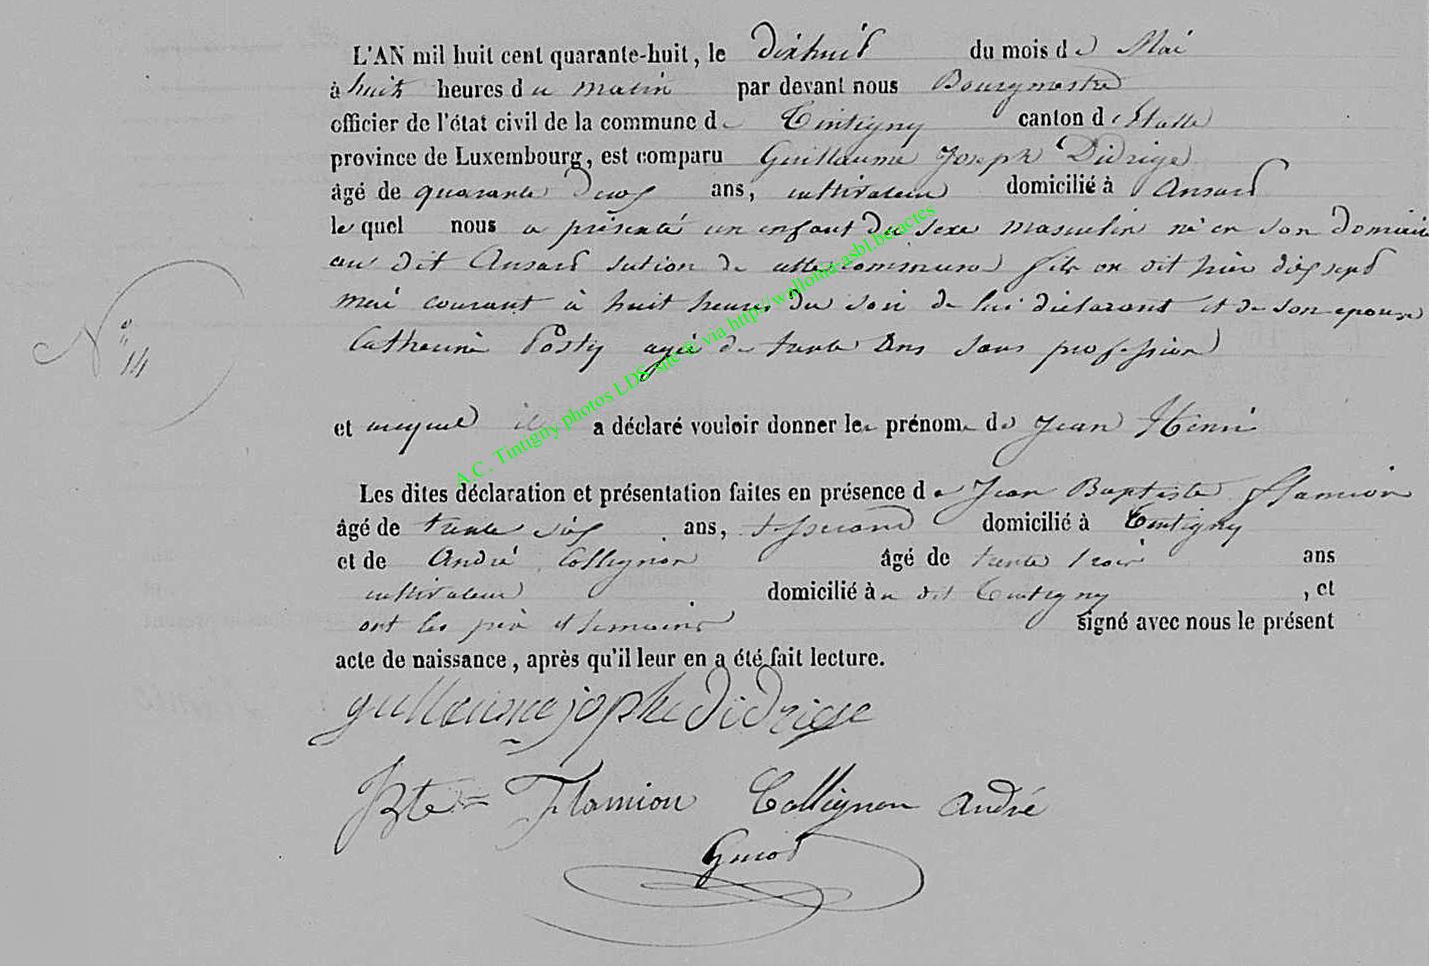 L'AN mil huit cent quarante-huit, le dixhuit du mois de Mai
à huit heures du matin par devant nous Bourgmestre
officier de l'état civil de la commune de Tintigny canton d'Etalle
province de Luxembourg, est comparu Guillaume Joseph Didrige
âgé de quarante deux ans, cultivateur domicilié à Ansart
lequel nous a présenté un enfant du sexe masculin né en son domicile
au dit Ansart section de cette commune fils on dit hier dix sept
mai courant à huit heures du soir de lui déclarant et de son epouse
N° 14
Catherine Posty agée de trente ans sans profession
et auquel il a déclaré vouloir donner les prénoms de Jean Henri
Les dites déclaration et présentation faites en présence de Jean Baptiste Flamion
âgé de trente six ans, tisserand domicilié à Tintigny
et de André Collignon âgé de trente trois ans
cultivateur domicilié au dit Tintigny, et
ont les père et temoins signé avec nous le présent
acte de naissance, après qu'il leur en a été fait lecture.
guillaume jophe didrige
JBte Flamion Collignon andré
Guiot
A.C. Tintigny photos LDS site © via http://wallonia-asbl.be/actes